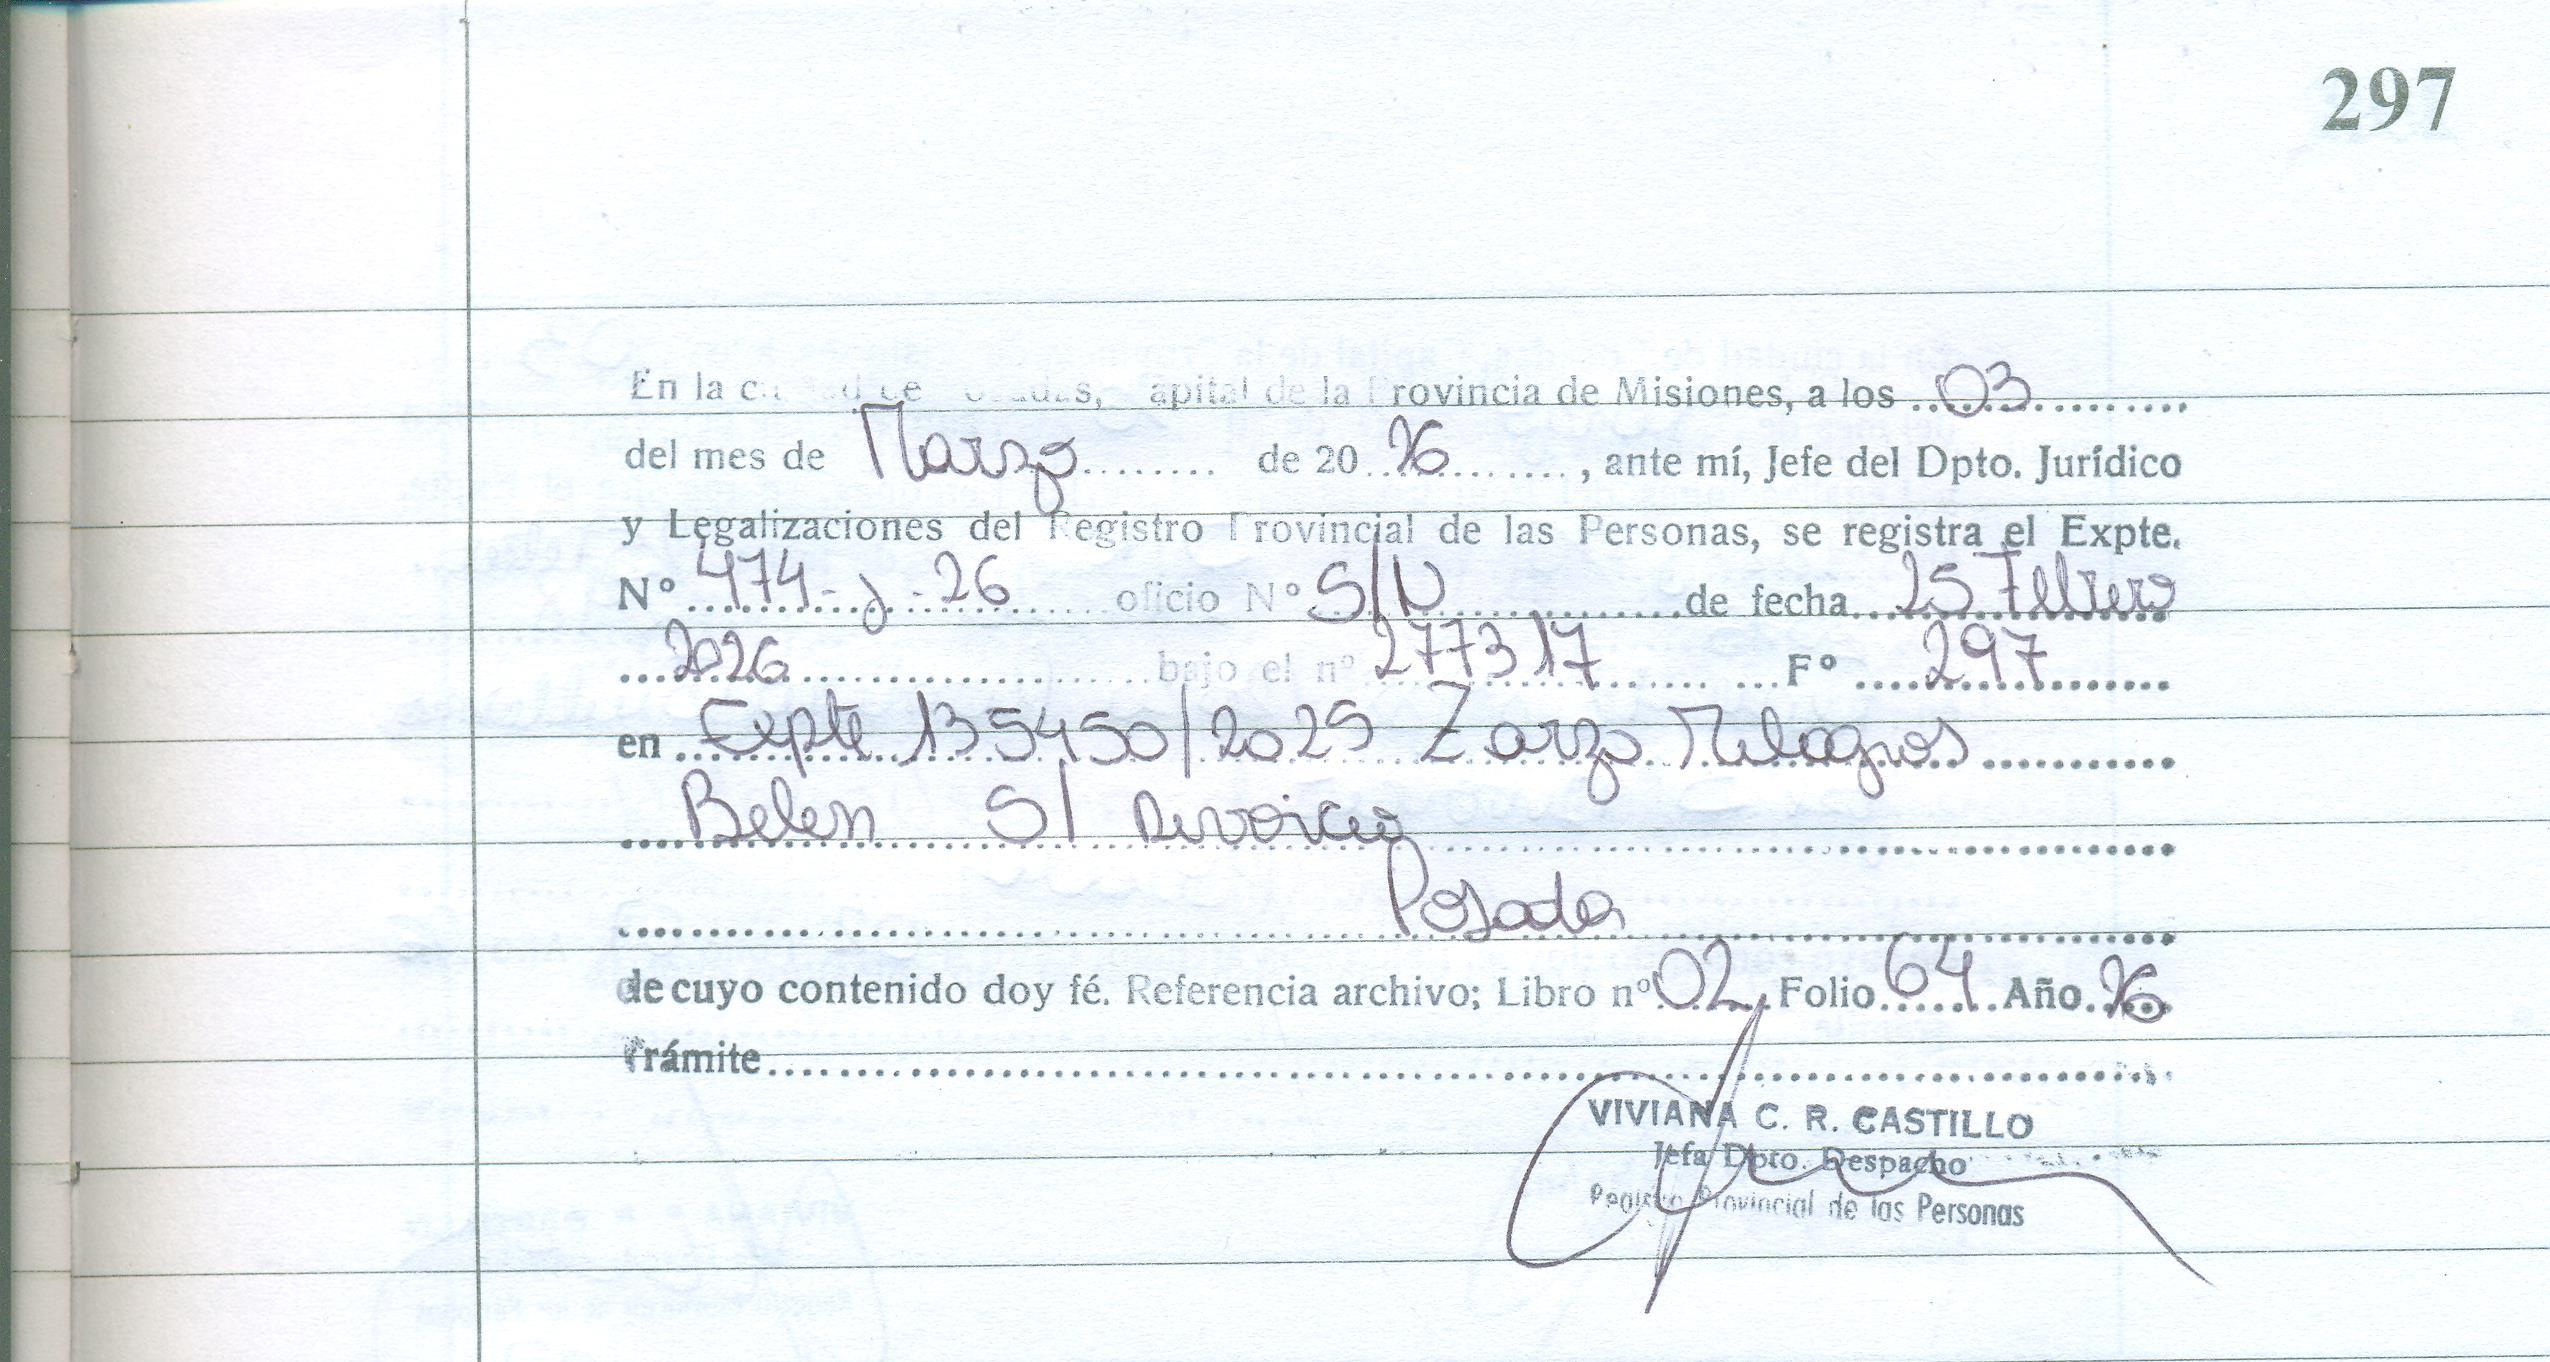 297
En la ciudad de Posadas, Capital de la Provincia de Misiones, a los 03
del mes de Marzo de 20 26, ante mí, Jefe del Dpto. Jurídico
y Legalizaciones del Registro Provincial de las Personas, se registra el Expte.
Nº 474-J-26 oficio Nº S/N de fecha 25 Febrero
2026 bajo el nº 277317 Fº 297
en Expte 135450/2025 Zarzo Milagros
Belen S/ Divorcio
Posadas
de cuyo contenido doy fé. Referencia archivo; Libro nº 02 Folio 64 Año 26
Trámite
VIVIANA C. R. CASTILLO
Jefa Dpto. Despacho
Registro Provincial de las Personas